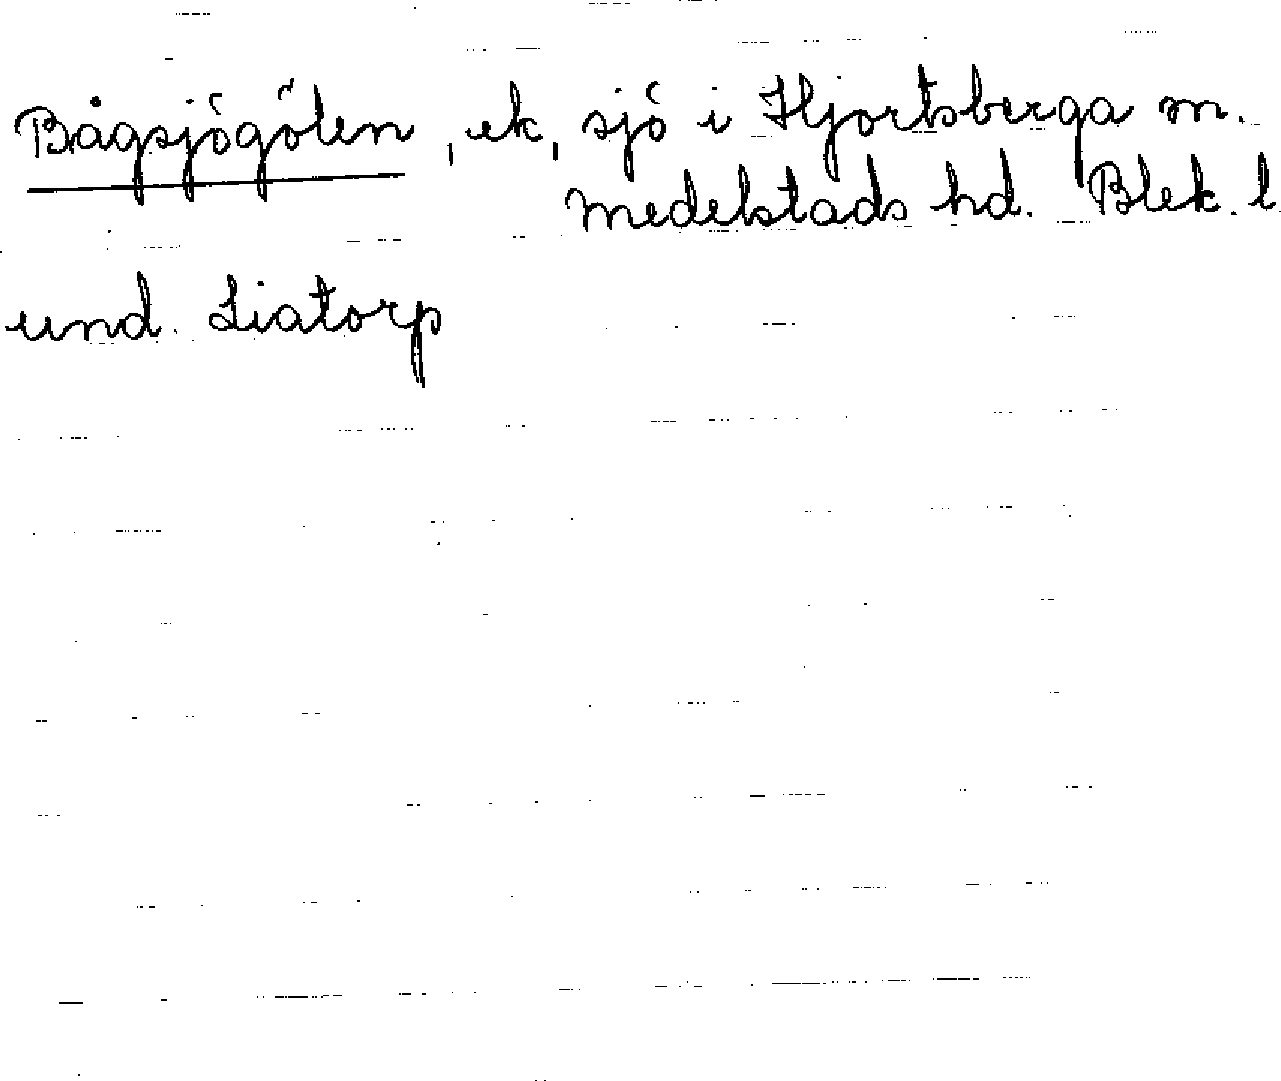 Bågsjögölen, ek, sjö i Hjortsberga sn.
Medelstads hd. Blek. l.
und. Liatorp